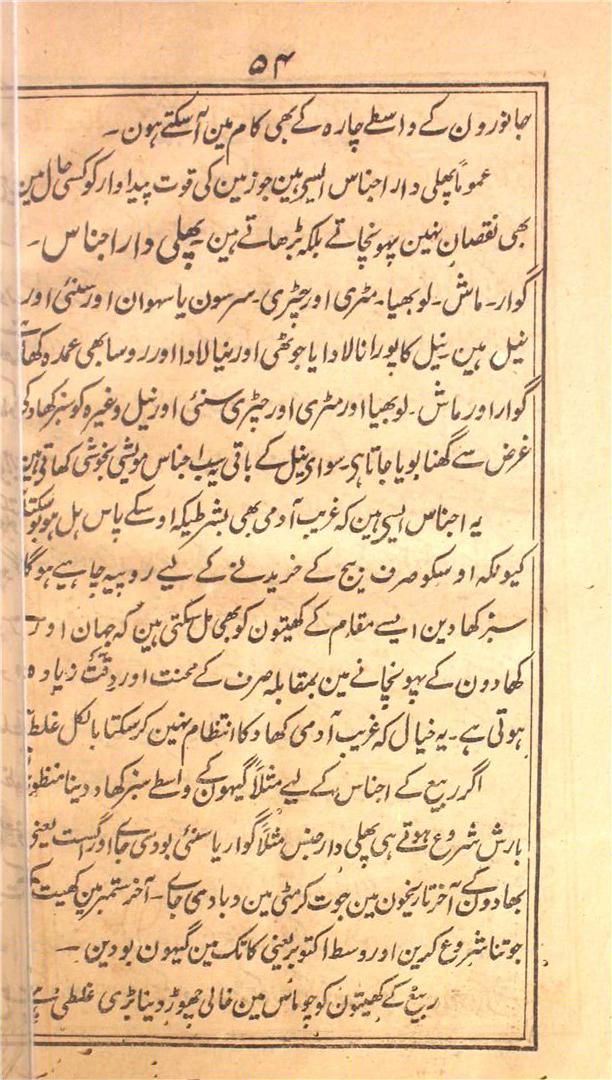 ۵۴
جانورون کے واسطے چارہ کے بھی کام مین آسکتے ہون۔
عموماً پھلی دار اجناس ایسی ہین جو زمین کی قوت پیداوار کو کسی حال مین
بھی نقصان نہین پہونچاتے بلکہ بڑھاتے ہین پھلی دار اجناس۔
گوار۔ ماش۔ لوبھیا۔ مٹری اور چٹری۔ سرسون یا سہوان اور سنئی اور
نیل ہین۔ نیل کا پورانا لادا یا جوٹھی اور نیا لادا اور روسا بھی عمدہ
گوار اور ماش۔ لوبھیا اور مٹری اور چٹری سنئی اور نیل وغیرہ کو سبز کھاد کی
غرض سے گھنا بویا جاتا ہی۔ سوای نیل کے باقی سب اجناس مویشی بخوشی کھاتی ہین
یہ اجناس ایسی ہین کہ غریب آدمی بھی بشرطیکہ اوسکے پاس ہل ہو بوسکتا
کیونکہ اوسکو صرف بیج کے خریدنے کے لیے روپیہ چاہیے ہوگا
سبز کھادین ایسے مقام کے کھیتون کو بھی مل سکتی ہین کہ جہان اور
کھادون کے پہونچانے مین بمقابلہ صرف کے محنت اور دقت زیادہ
ہوتی ہے۔ یہ خیال کہ غریب آدمی کھاد کا انتظام نہین کرسکتا بالکل غلط
اگر ربیع کے اجناس کے لیے مثلاً گیہون کے واسطے سبز کھاد دینا منظور
بارش شروع ہوتے ہی پھلی دار جنس مثلاً گوار یا سنئی بودی جاے اور اگست یعنی
بھادون کے آخر تاریخون مین جوت کر مٹی مین دبا دی جاے۔ آخر ستمبر مین کھیت
جوتنا شروع کرین اور وسط اکتوبر یعنی کاتک مین گیہون بودین۔
ربیع کے کھیتون کو چوماس مین خالی چھوڑ دینا بڑی غلطی ہے